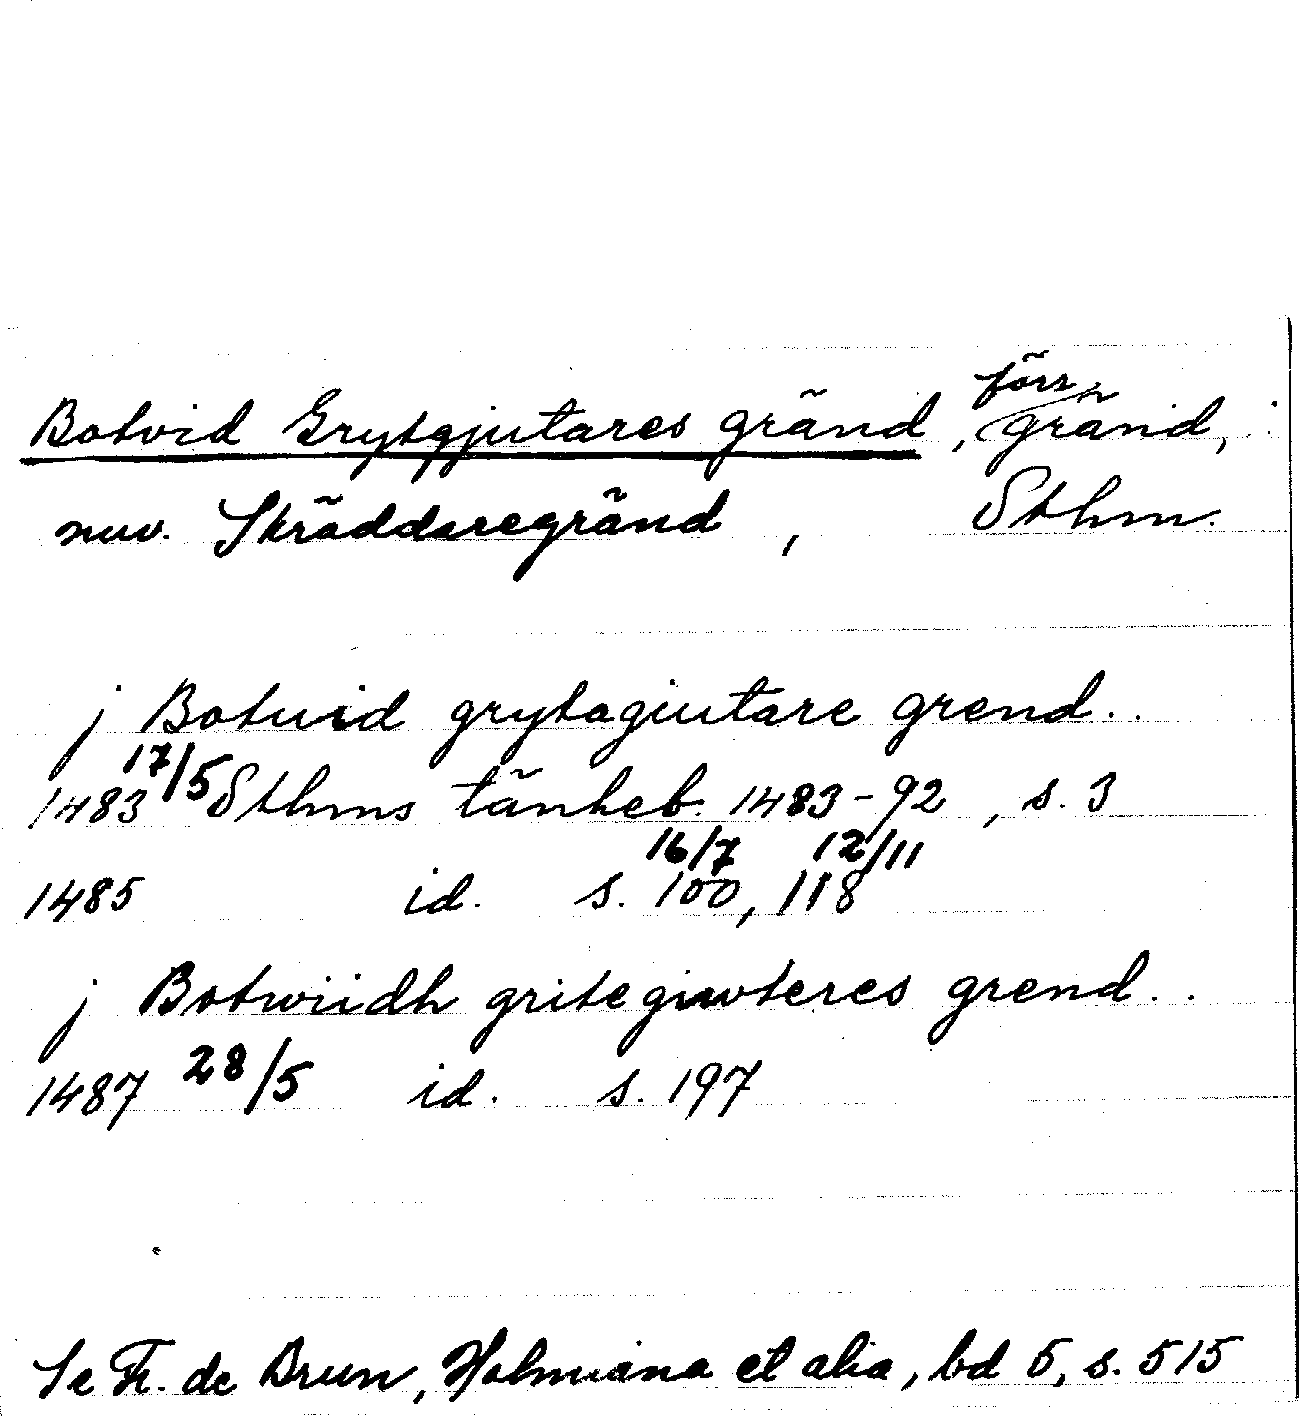 Botvid Grytgjutares gränd, förr gränd,
nuv. Skräddaregränd, Sthm.
j Botuid grytagiutare grend..
1483 17/5 Sthms tänkeb. 1483-92, s. 3
16/7 12/11
1485 id. s. 100, 118
j Botwiidh gritegiwteres grend..
1487 28/5 id. s. 197
Se Fr. de Brun, Holmiana et alia, bd 5, s. 515